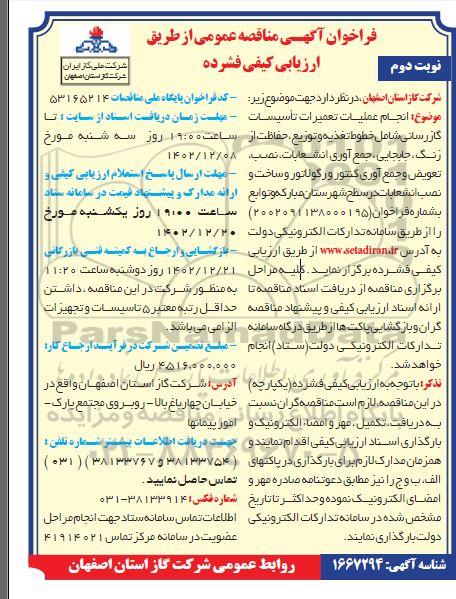 فراخوان آگهی مناقصه عمومی از طریق
ارزیابی کیفی فشرده
شرکت ملی گاز ایران
شرکت گاز استان اصفهان
نوبت دوم
شرکت گاز استان اصفهان، در نظر دارد جهت موضوع زیر:
موضوع: انجام عملیات تعمیرات تأسیسات
گازرسانی شامل خطوط تغذیه و توزیع، حفاظت از
زنگ، جابجایی، جمع آوری انشعابات، نصب،
تعویض و جمع آوری کنتور و رگولاتور و ساخت و
نصب انشعابات در سطح شهرستان مبارکه و توابع
بشماره فراخوان (۲۰۰۲۰۹۱۱۳۸۰۰۰۱۹۵)
را از طریق سامانه تدارکات الکترونیکی دولت
به آدرس www.setadiran.ir از طریق ارزیابی
کیفی فشرده برگزار نمایند. کلیه مراحل
برگزاری مناقصه از دریافت اسناد مناقصه تا
ارائه اسناد ارزیابی کیفی و پیشنهاد مناقصه
گران و بازگشایی پاکت ها از طریق درگاه سامانه
تدارکات الکترونیکی دولت (ستاد) انجام
خواهد شد.
تذکر: با توجه به ارزیابی کیفی فشرده (یکپارچه)
در این مناقصه، لازم است مناقصه گران نسبت
به دریافت، تکمیل، مهر و امضاء الکترونیک و
بارگذاری اسناد ارزیابی کیفی اقدام نمایند و
همزمان مدارک لازم برای بارگذاری در پاکتهای
الف، ب و ج را نیز مطابق دعوتنامه صادره مهر و
امضای الکترونیک نموده و حداکثر تا تاریخ
مشخص شده در سامانه تدارکات الکترونیکی
دولت بارگذاری نمایند.
- کد فراخوان پایگاه ملی مناقصات ۵۳۱۶۵۲۱۴
- مهلت زمان دریافت اسناد از سایت: تا
ساعت ۱۹:۰۰ روز سه شنبه مورخ
۱۴۰۲/۱۲/۰۸
- مهلت ارسال پاسخ استعلام ارزیابی کیفی و
ارائه مدارک و پیشنهاد قیمت در سامانه ستاد
ساعت ۱۹:۰۰ روز یکشنبه مورخ
۱۴۰۲/۱۲/۲۰
- بازگشایی و ارجاع به کمیته فنی بازرگانی
۱۴۰۲/۱۲/۲۱ روز دوشنبه ساعت ۱۱:۲۰
به منظور شرکت در این مناقصه، داشتن
حداقل رتبه معتبر ۵ تاسیسات و تجهیزات
الزامی می باشد.
- مبلغ تضمین شرکت در فرآیند ارجاع کار:
۴،۵۱۶،۰۰۰،۰۰۰ ریال
آدرس: شرکت گاز استان اصفهان واقع در
خیابان چهارباغ بالا - روبروی مجتمع پارک -
امور پیمانها
جهت دریافت اطلاعات بیشتر شماره تلفن:
(۳۸۱۳۳۷۵۴ و ۳۸۱۳۳۷۶۷) (۰۳۱)
تماس حاصل نمایید.
شماره فکس: ۳۸۱۳۳۹۱۴-۰۳۱
اطلاعات تماس سامانه ستاد جهت انجام مراحل
عضویت در سامانه مرکز تماس ۰۲۱ ۴۱۹۱۴
شناسه آگهی: ۱۶۶۷۲۹۴
روابط عمومی شرکت گاز استان اصفهان